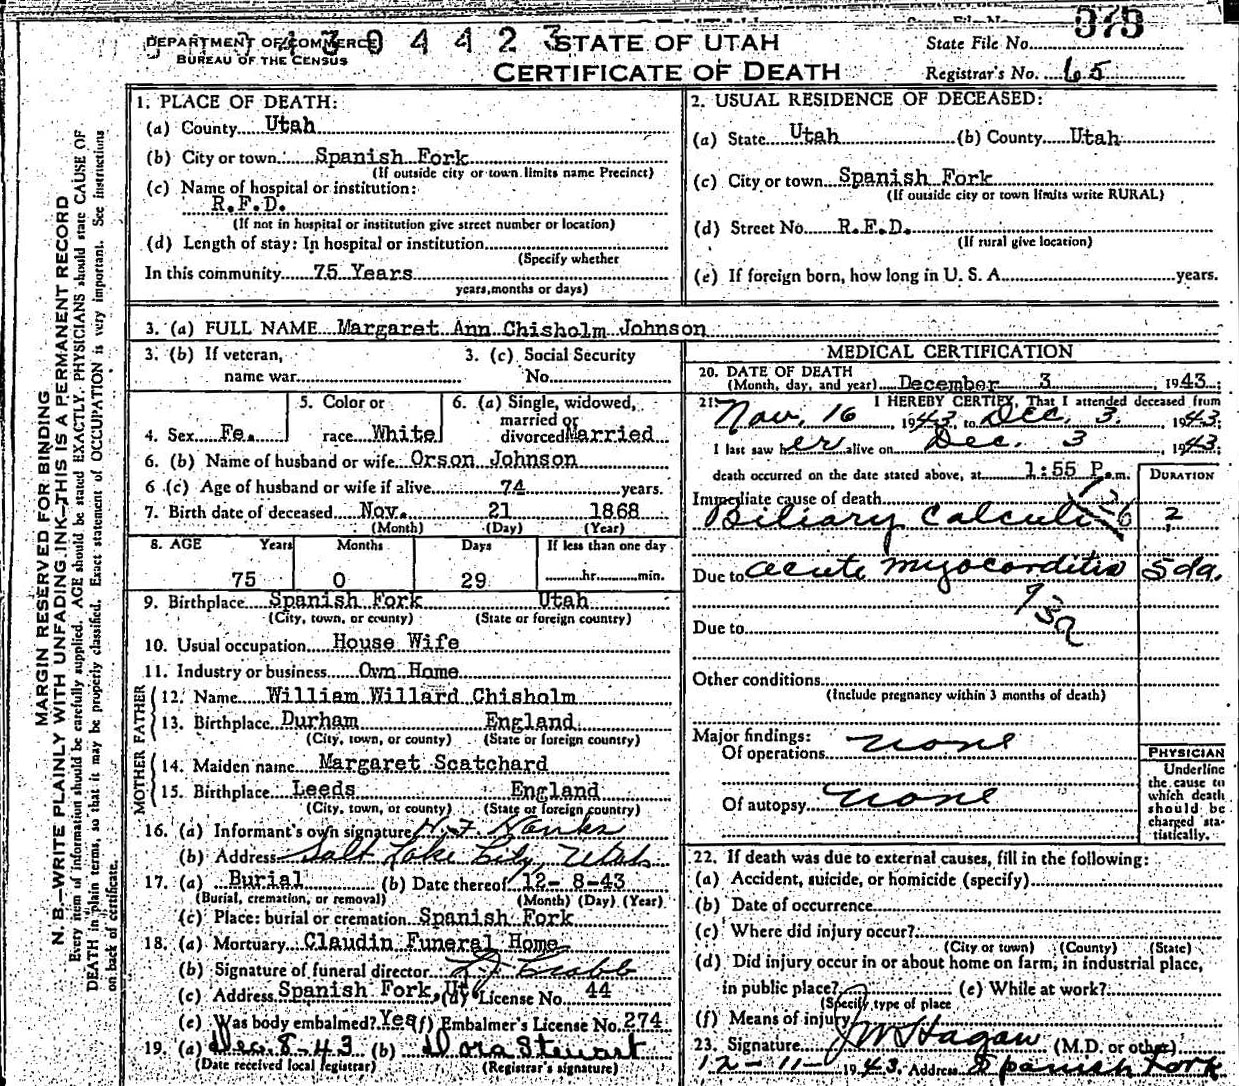 DEPARTMENT OF COMMERCE
BUREAU OF THE CENSUS
4 3 0 4 4 2 3
STATE OF UTAH
CERTIFICATE OF DEATH
State File No. 379
Registrar's No. 65
MARGIN RESERVED FOR BINDING
N. B.—WRITE PLAINLY WITH UNFADING INK—THIS IS A PERMANENT RECORD
Every item of information should be carefully supplied. AGE should be stated EXACTLY. PHYSICIANS should state CAUSE OF
DEATH in plain terms, so that it may be properly classified. Exact statement of OCCUPATION is very important. See instructions
on back of certificate.
1. PLACE OF DEATH:
(a) County Utah
(b) City or town Spanish Fork
(If outside city or town limits name Precinct)
(c) Name of hospital or institution:
R.F.D.
(If not in hospital or institution give street number or location)
(d) Length of stay: In hospital or institution
(Specify whether
In this community 75 Years
years, months or days)
2. USUAL RESIDENCE OF DECEASED:
(a) State Utah (b) County Utah
(c) City or town Spanish Fork
(If outside city or town limits write RURAL)
(d) Street No. R.F.D.
(If rural give location)
(e) If foreign born, how long in U. S. A. years.
3. (a) FULL NAME Margaret Ann Chisholm Johnson
3. (b) If veteran, name war
3. (c) Social Security No.
4. Sex Fe.
5. Color or race White
6. (a) Single, widowed, married or divorced Married
6. (b) Name of husband or wife Orson Johnson
6 (c) Age of husband or wife if alive 74 years.
7. Birth date of deceased Nov. 21 1868
(Month) (Day) (Year)
8. AGE Years Months Days If less than one day
75 0 29 hr. min.
9. Birthplace Spanish Fork Utah
(City, town, or county) (State or foreign country)
10. Usual occupation House Wife
11. Industry or business Own Home
FATHER
12. Name William Willard Chisholm
13. Birthplace Durham England
(City, town, or county) (State or foreign country)
MOTHER
14. Maiden name Margaret Scatchard
15. Birthplace Leeds England
(City, town, or county) (State or foreign country)
16. (a) Informant's own signature H. F. Hanks
(b) Address Salt Lake City, Utah
17. (a) Burial (b) Date thereof 12-8-43
(Burial, cremation, or removal) (Month) (Day) (Year)
(c) Place: burial or cremation Spanish Fork
18. (a) Mortuary Claudin Funeral Home
(b) Signature of funeral director
(c) Address Spanish Fork, Ut (d) License No. 44
(e) Was body embalmed? Yes (f) Embalmer's License No. 274
19. (a) Dec. 8-43 (b) Dora Stewart
(Date received local registrar) (Registrar's signature)
MEDICAL CERTIFICATION
20. DATE OF DEATH
(Month, day, and year) December 3, 1943;
21. I HEREBY CERTIFY, That I attended deceased from
Nov. 16, 1943, to Dec. 3, 1943;
I last saw her alive on Dec. 3, 1943;
death occurred on the date stated above, at 1:55 P.m.
DURATION
Immediate cause of death
Biliary Calculi 126 ?
Due to acute myocorditis 5 da.
93a
Due to
Other conditions
(Include pregnancy within 3 months of death)
Major findings:
Of operations none
Of autopsy none
PHYSICIAN
Underline
the cause to
which death
should be
charged sta-
tistically.
22. If death was due to external causes, fill in the following:
(a) Accident, suicide, or homicide (specify)
(b) Date of occurrence
(c) Where did injury occur?
(City or town) (County) (State)
(d) Did injury occur in or about home on farm, in industrial place,
in public place? (e) While at work?
(Specify type of place
(f) Means of injury
23. Signature J W Hagan (M.D. or other)
12-11- 1943. Address Spanish Fork